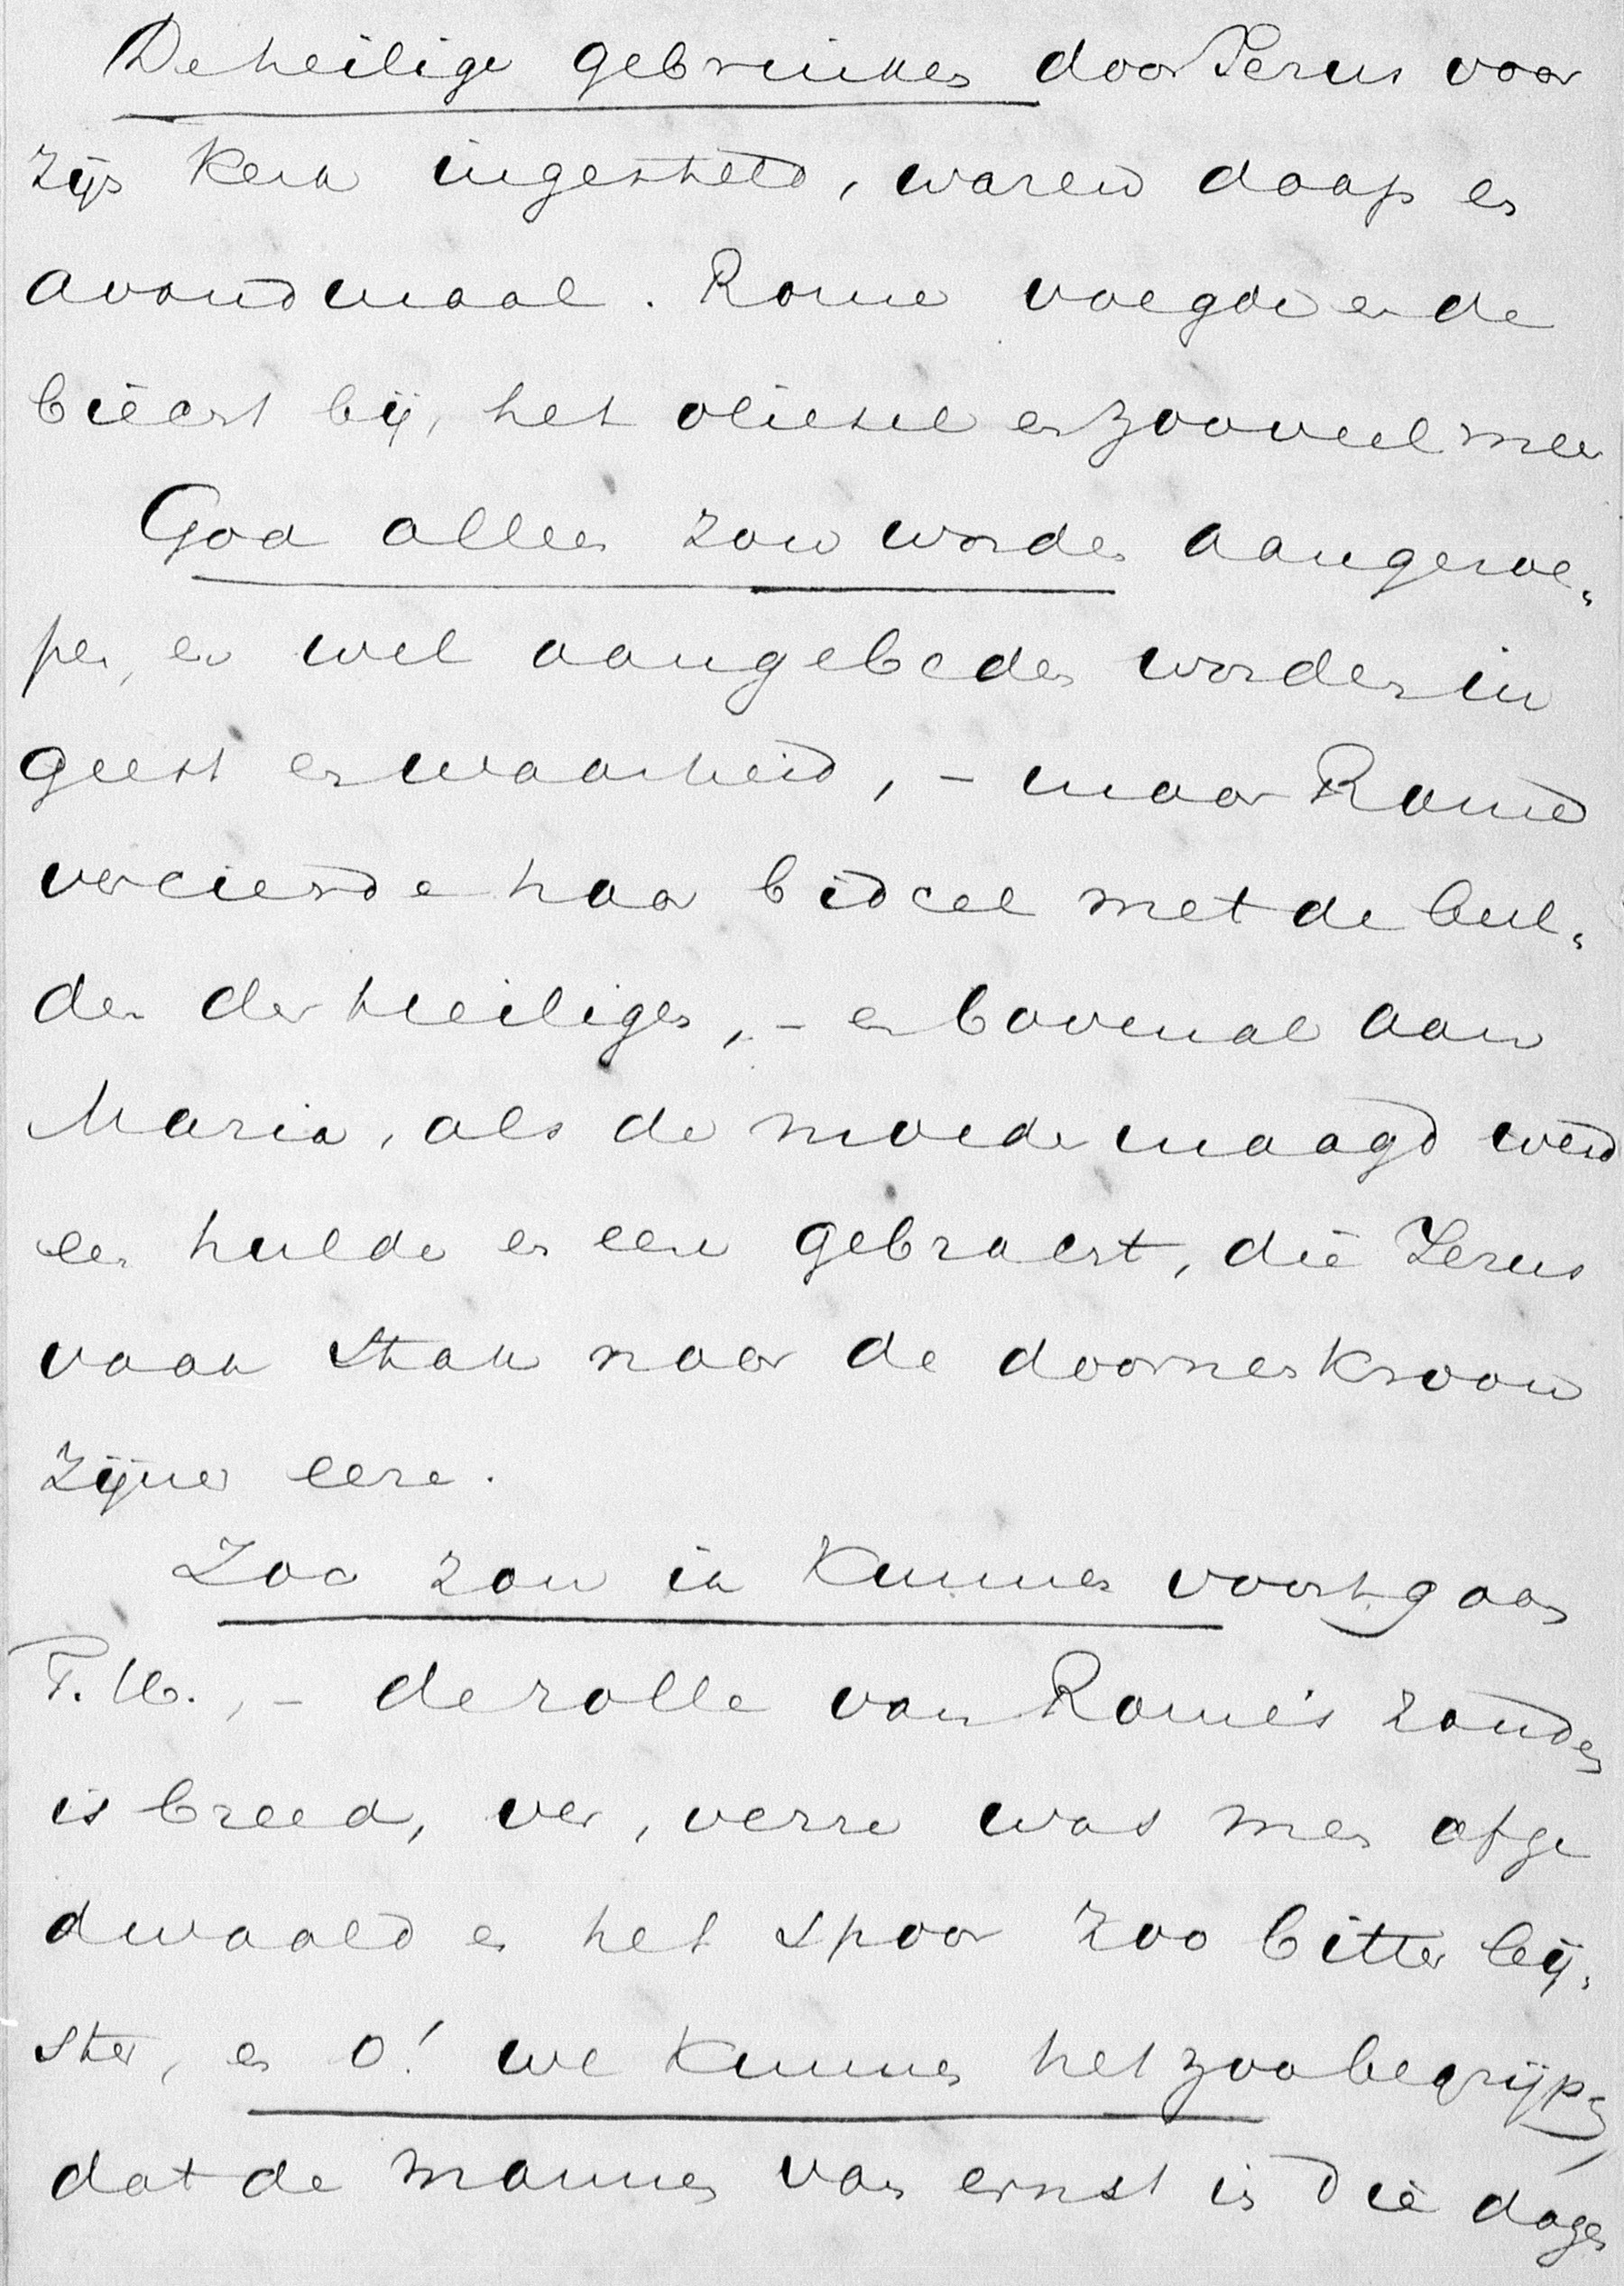 De heilige gebruiken door Jezus voor
zijn Kerk ingesteld, waren doop en
avondmaal. Rome voegde er de
biecht bij, het oliesel en zooveel meer
God alleen zou worden aangeroe„
pen, en wil aangebeden worden in
geest en waarheid, – maar Rome
vercierde haar bidcel met de beel„
den der heiligen, – en bovenal aan
Maria, als de moedermaagd werd
een hulde en eere gebracht, die Jezus
vaak stak naar de doornenkroon
zijner eere.
Zoo zou ik kunnen voortgaan
T. H., – de rolle van Rome's zonden
is breed, ver, verre was men afge
dwaald en het spoor zoo bitter bij„
ster, en o! we kunnen het zoo begrijpen,
dat de mannen van ernst in die dagen